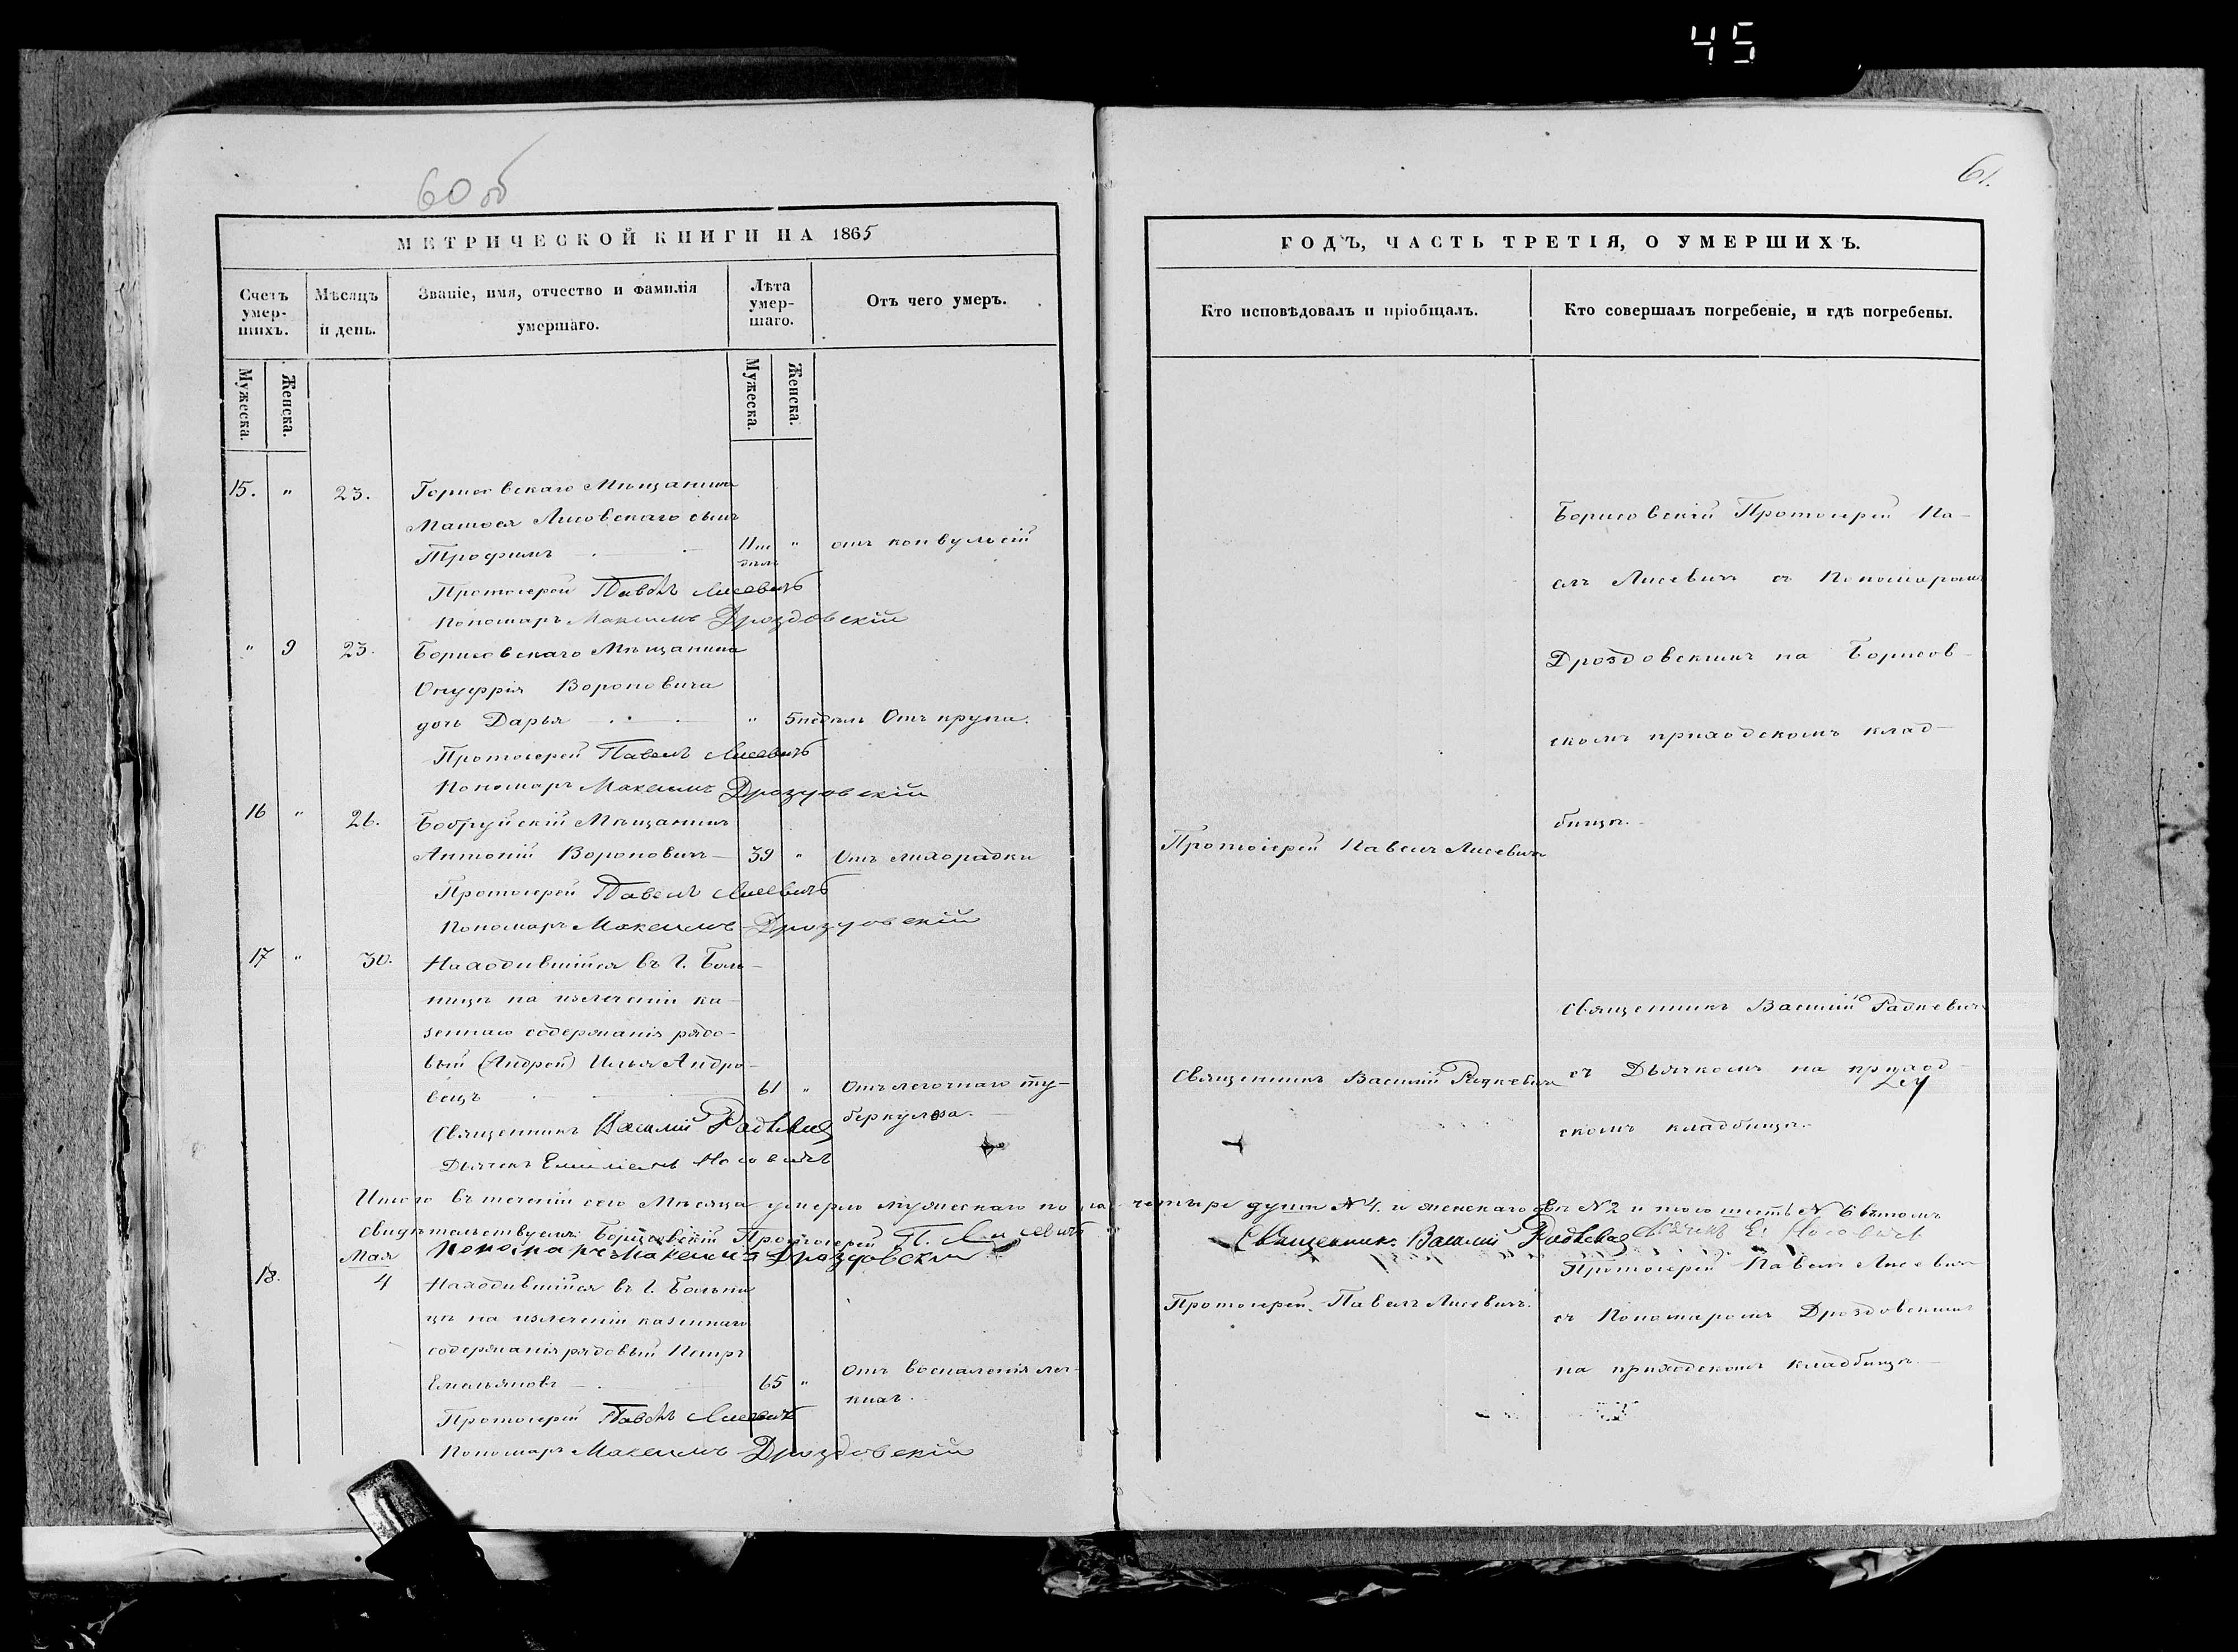 45
60 об
61.
МЕТРИЧЕСКОЙ КНИГИ НА 1865
ГОДЪ, ЧАСТЬ ТРЕТІЯ, О УМЕРШИХЪ.
Счетъ умер-шихъ.
Мѣсяцъ и день.
Званіе, имя, отчество и фамилія умершаго.
Лѣта умер-шаго.
Отъ чего умеръ.
Кто исповѣдовалъ и пріобщалъ.
Кто совершалъ погребеніе, и гдѣ погребены.
Мужеска.
Женска.
Мужеска.
Женска.
15. " 23. Борисовскаго Мѣщанина
Матѳея Лисовскаго сынъ
Трофимъ " отъ конвульсій
Протоіерей Павелъ Лисевичъ
Пономарь Максимъ Дроздовскій
" 9 23. Борисовскаго Мѣщанина
Онуфрія Вороновича
дочь Дарья " 5 недѣль Отъ крупа.
Протоіерей Павелъ Лисевичъ
Пономарь Максимъ Дроздовскій
Борисовскій Протоіерей Па-
елъ Лисевичъ съ Пономаремъ
Дроздовскимъ на Борисов-
скомъ приходскомъ клад-
бищѣ.
16 " 26. Бобруйскій Мѣщанинъ
Антоній Вороновичъ 39 " Отъ лихорадки
Протоіерей Павелъ Лисевичъ
Протоіерей Павелъ Лисевичъ
Пономарь Максимъ Дроздовскій
17 " 30. Находившійся въ Г. Боль-
ницѣ на излеченіи ка-
зеннаго содержанія рядо-
вый (Андрей) Илья Андро-
вецъ 61 " Отъ легочнаго ту-
беркулеза.
Священникъ Василій Радкевичъ
Дьячекъ Емиліанъ Носовичъ
Священникъ Василій Радкевичъ
Священникъ Василій Радкевичъ
съ Дьячкомъ на приход-
скомъ кладбищѣ.
Итого въ теченіи сего Мѣсяца умерло мужескаго пола четыре души № 4. и женскаго двѣ № 2 и того шесть № 6 въ томъ
свидѣтельствуемъ: Борисовскій Протоіерей П. Лисевичъ Священникъ Василій Радкевичъ Дьячекъ Е. Носовичъ
Пономарь Максимъ Дроздовскій
Мая
18. 4 Находившійся въ Г. Больни
цѣ на излеченіи казеннаго
содержанія рядовый Петръ
Емельяновъ 65 " Отъ воспаленія лег-
кихъ.
Протоіерей Павелъ Лисевичъ
Пономарь Максимъ Дроздовскій
Протоіерей Павелъ Лисевичъ.
Протоіерей Павелъ Лисевичъ
съ Пономаремъ Дроздовскимъ
на приходскомъ кладбищѣ.